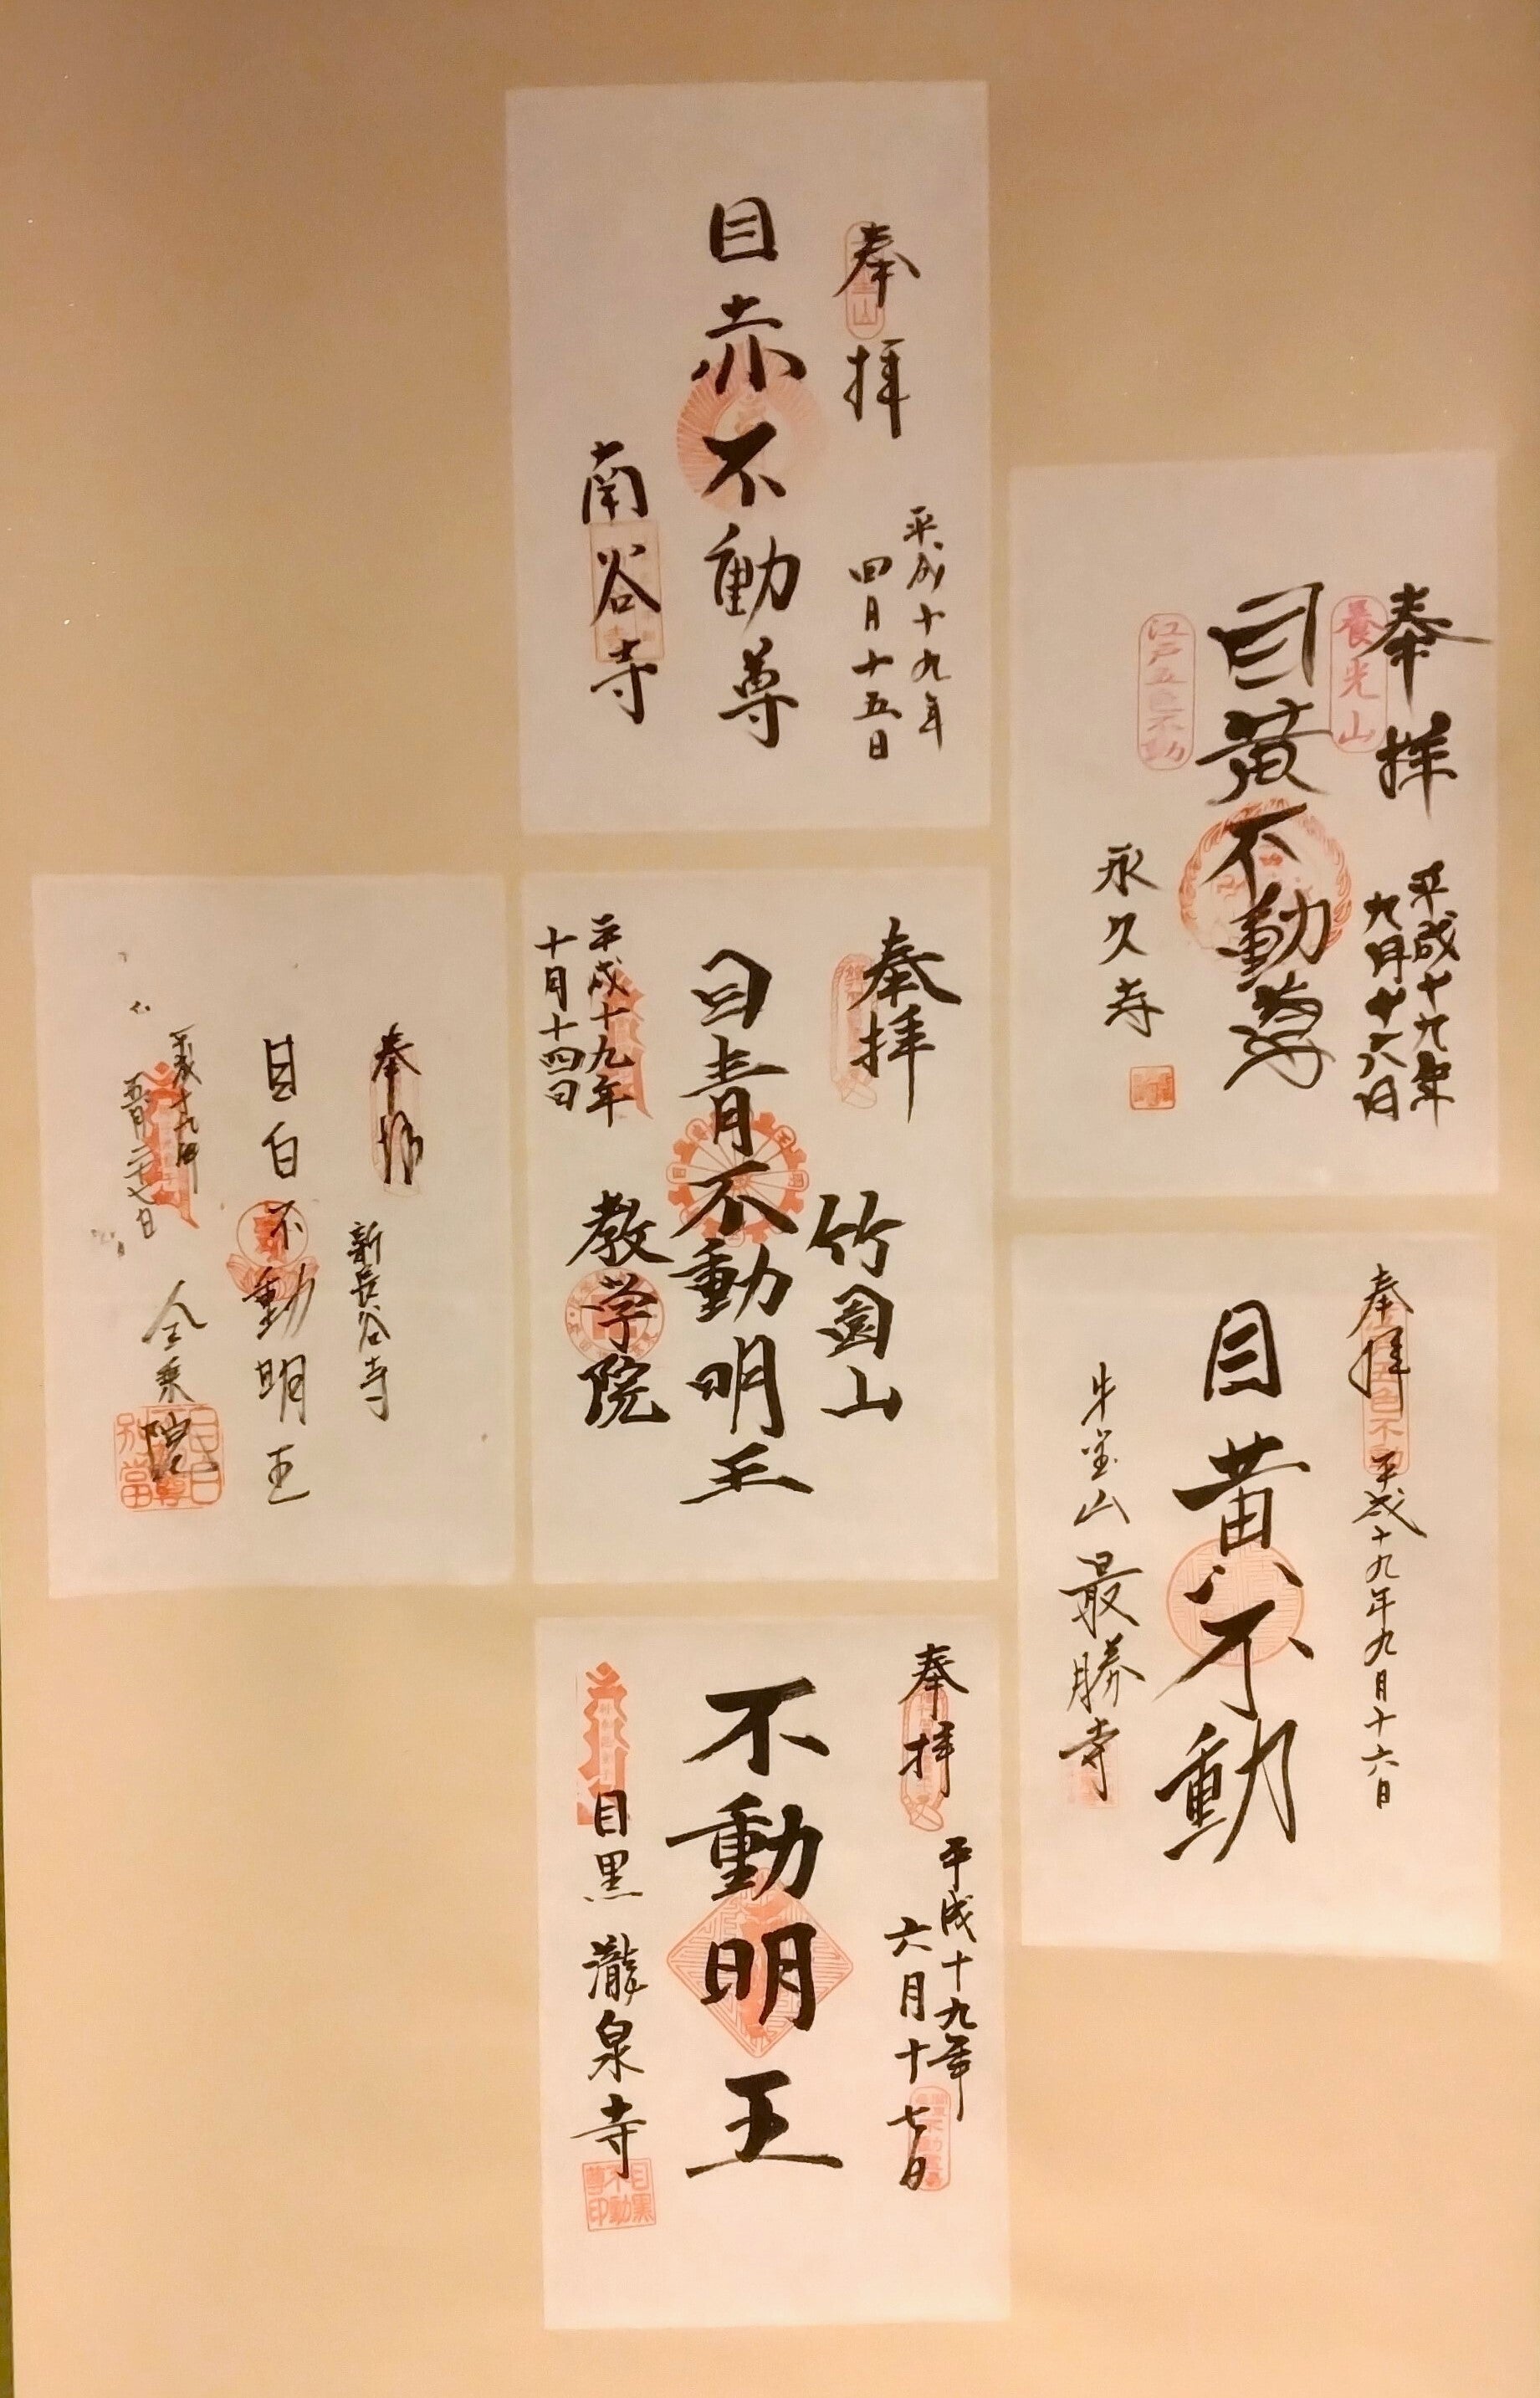 奉拝
平成十九年
四月十五日
目赤不動尊
南谷寺
奉拝
養光山
平成十九年
九月十六日
目黄不動尊
江戸五色不動
永久寺
奉拝
竹園山
目青不動明王
平成十九年
十月十四日
教学院
奉拝
新長谷寺
目白不動明王
平成十九年
金乗院
奉拝
平成十九年九月十六日
目黄不動
牛宝山
最勝寺
奉拝
平成十九年
六月十七日
不動明王
目黒
瀧泉寺
目黒
不動
尊印